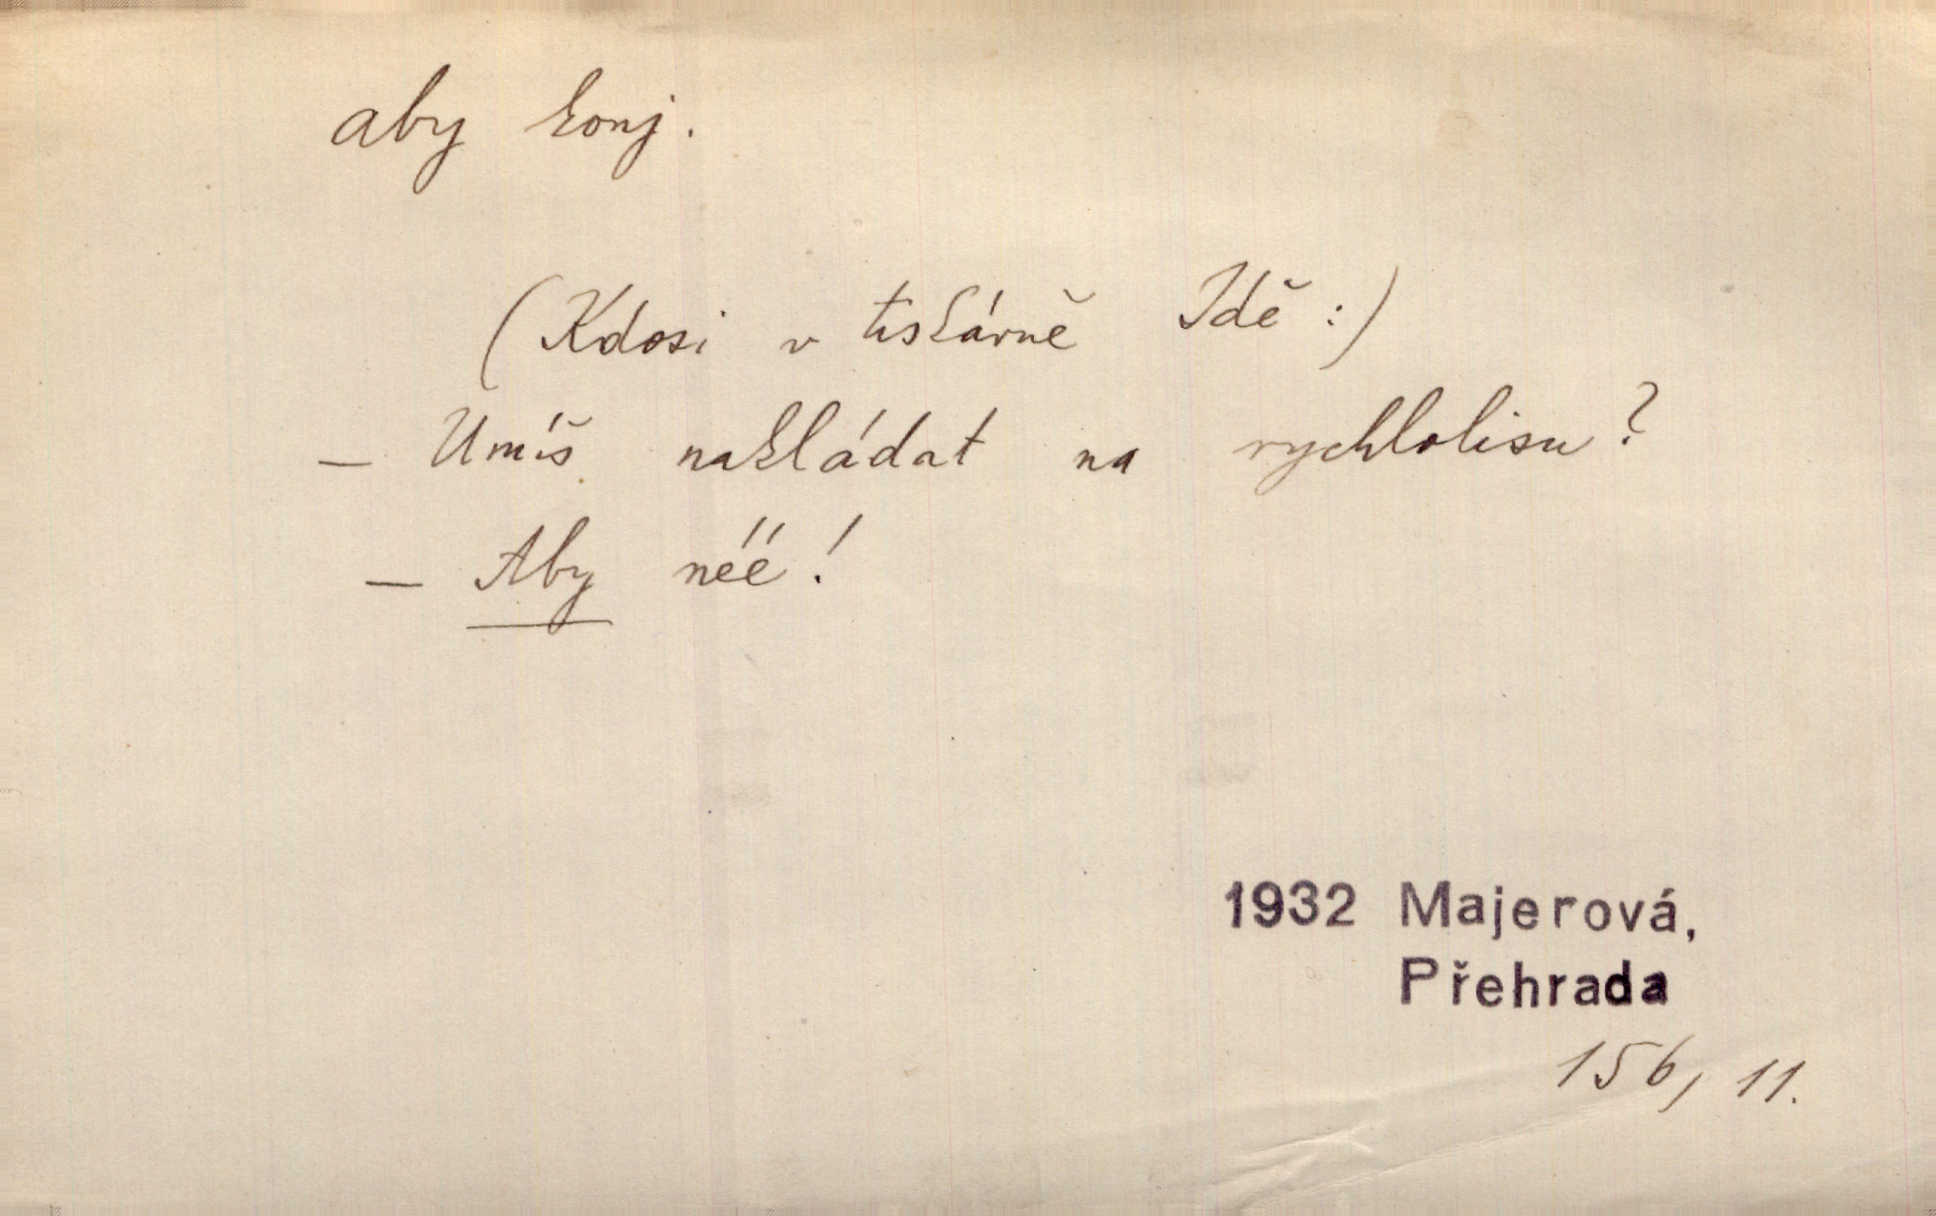 aby konj.
(Kdosi v tiskárně Idě:)
— Umíš nakládat na rychlolisu?
— Aby néé!
1932 Majerová,
Přehrada
156, 11.